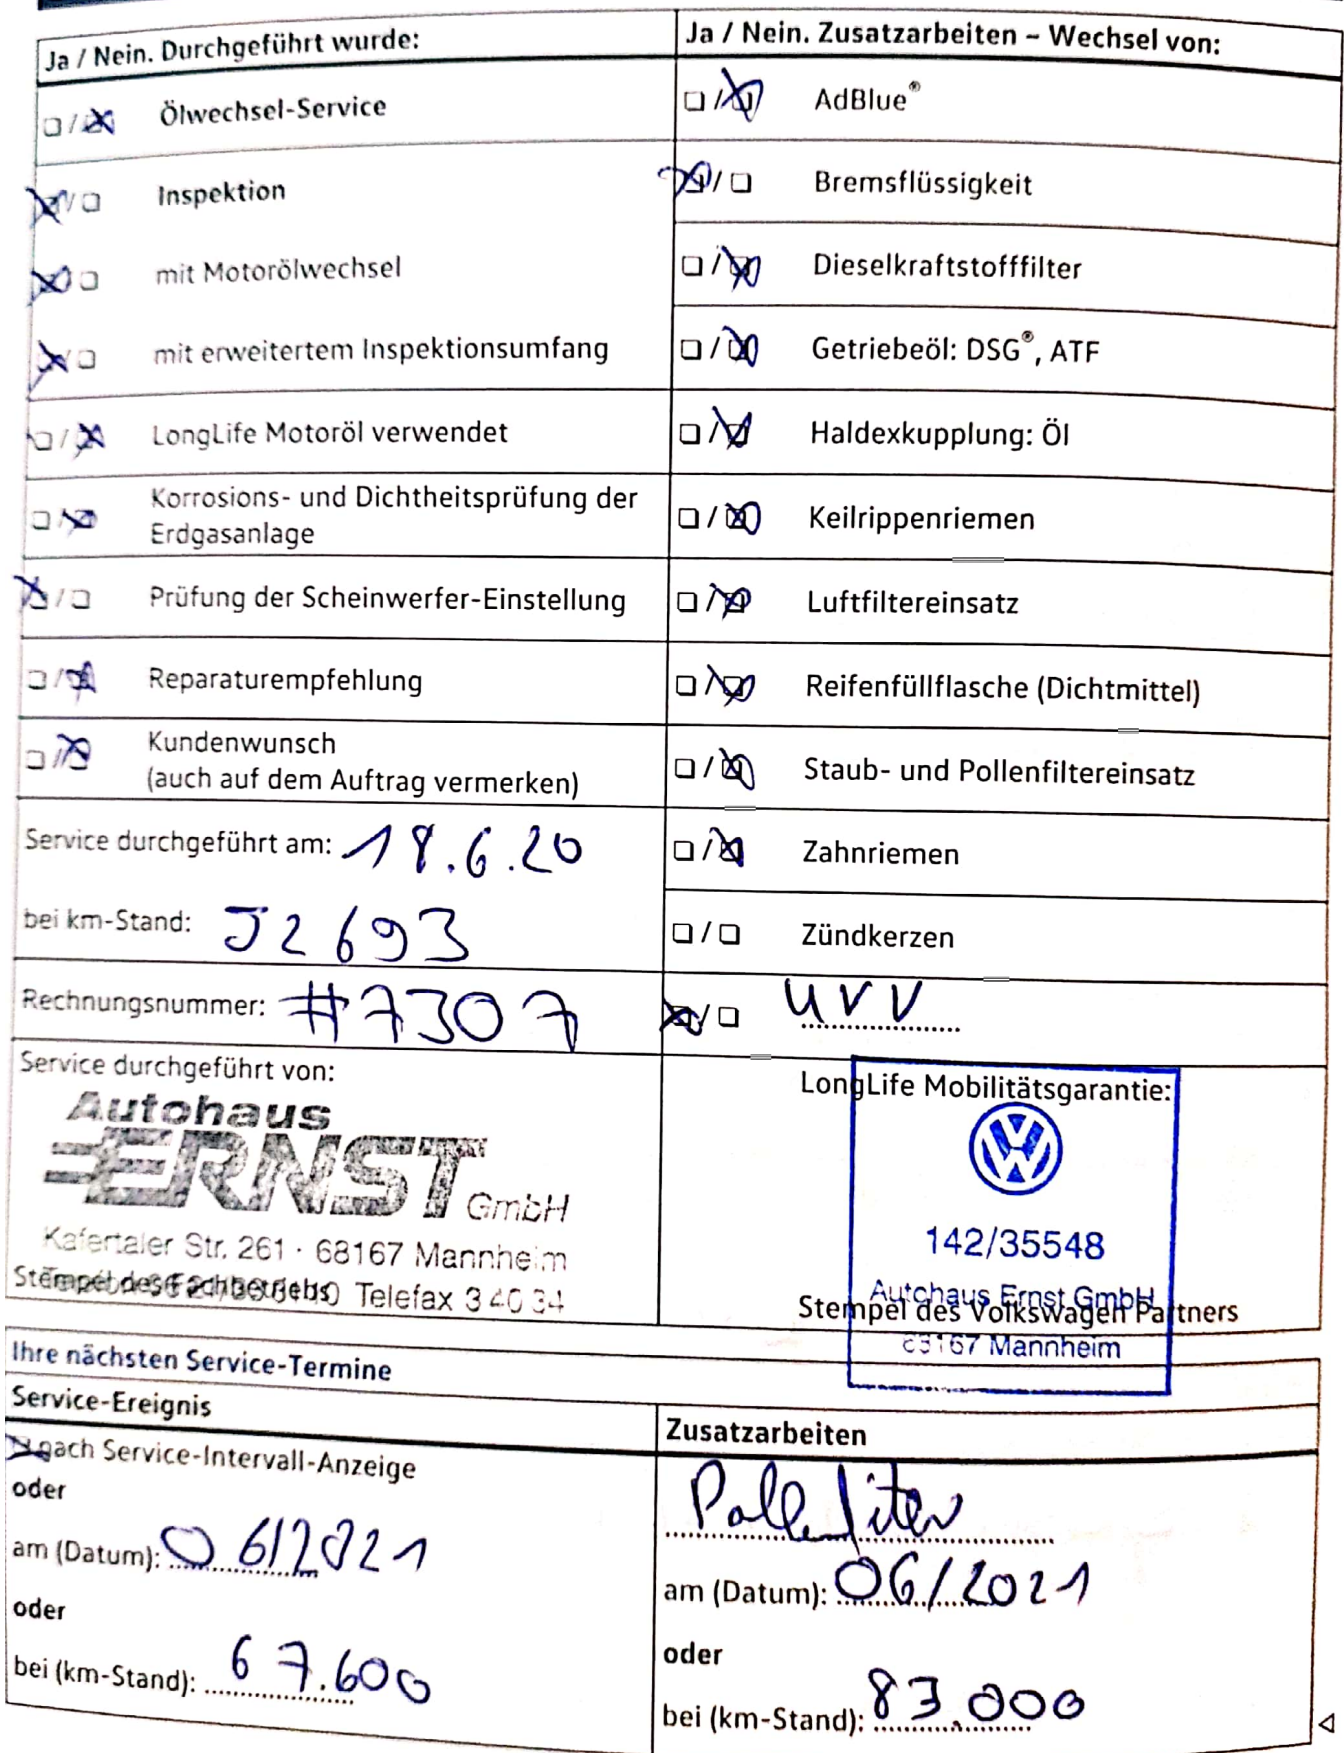 Ja / Nein. Durchgeführt wurde:
Ölwechsel-Service
Inspektion
mit Motorölwechsel
mit erweitertem Inspektionsumfang
LongLife Motoröl verwendet
Korrosions- und Dichtheitsprüfung der
Erdgasanlage
Prüfung der Scheinwerfer-Einstellung
Reparaturempfehlung
Kundenwunsch
(auch auf dem Auftrag vermerken)
Service durchgeführt am: 18.6.20
bei km-Stand: 52693
Rechnungsnummer: #7307
Service durchgeführt von:
Autohaus
ERNST GmbH
Kafertaler Str. 261 · 68167 Mannheim
Stempel des Fachbetriebs
Telefax 3 40 34
Ja / Nein. Zusatzarbeiten – Wechsel von:
AdBlue®
Bremsflüssigkeit
Dieselkraftstofffilter
Getriebeöl: DSG®, ATF
Haldexkupplung: Öl
Keilrippenriemen
Luftfiltereinsatz
Reifenfüllflasche (Dichtmittel)
Staub- und Pollenfiltereinsatz
Zahnriemen
Zündkerzen
UVV
LongLife Mobilitätsgarantie:
142/35548
Autohaus Ernst GmbH
Stempel des Volkswagen Partners
68167 Mannheim
Ihre nächsten Service-Termine
Service-Ereignis
nach Service-Intervall-Anzeige
oder
am (Datum): 06/2021
oder
bei (km-Stand): 67.600
Zusatzarbeiten
Pollenfilter
am (Datum): 06/2021
oder
bei (km-Stand): 83.000